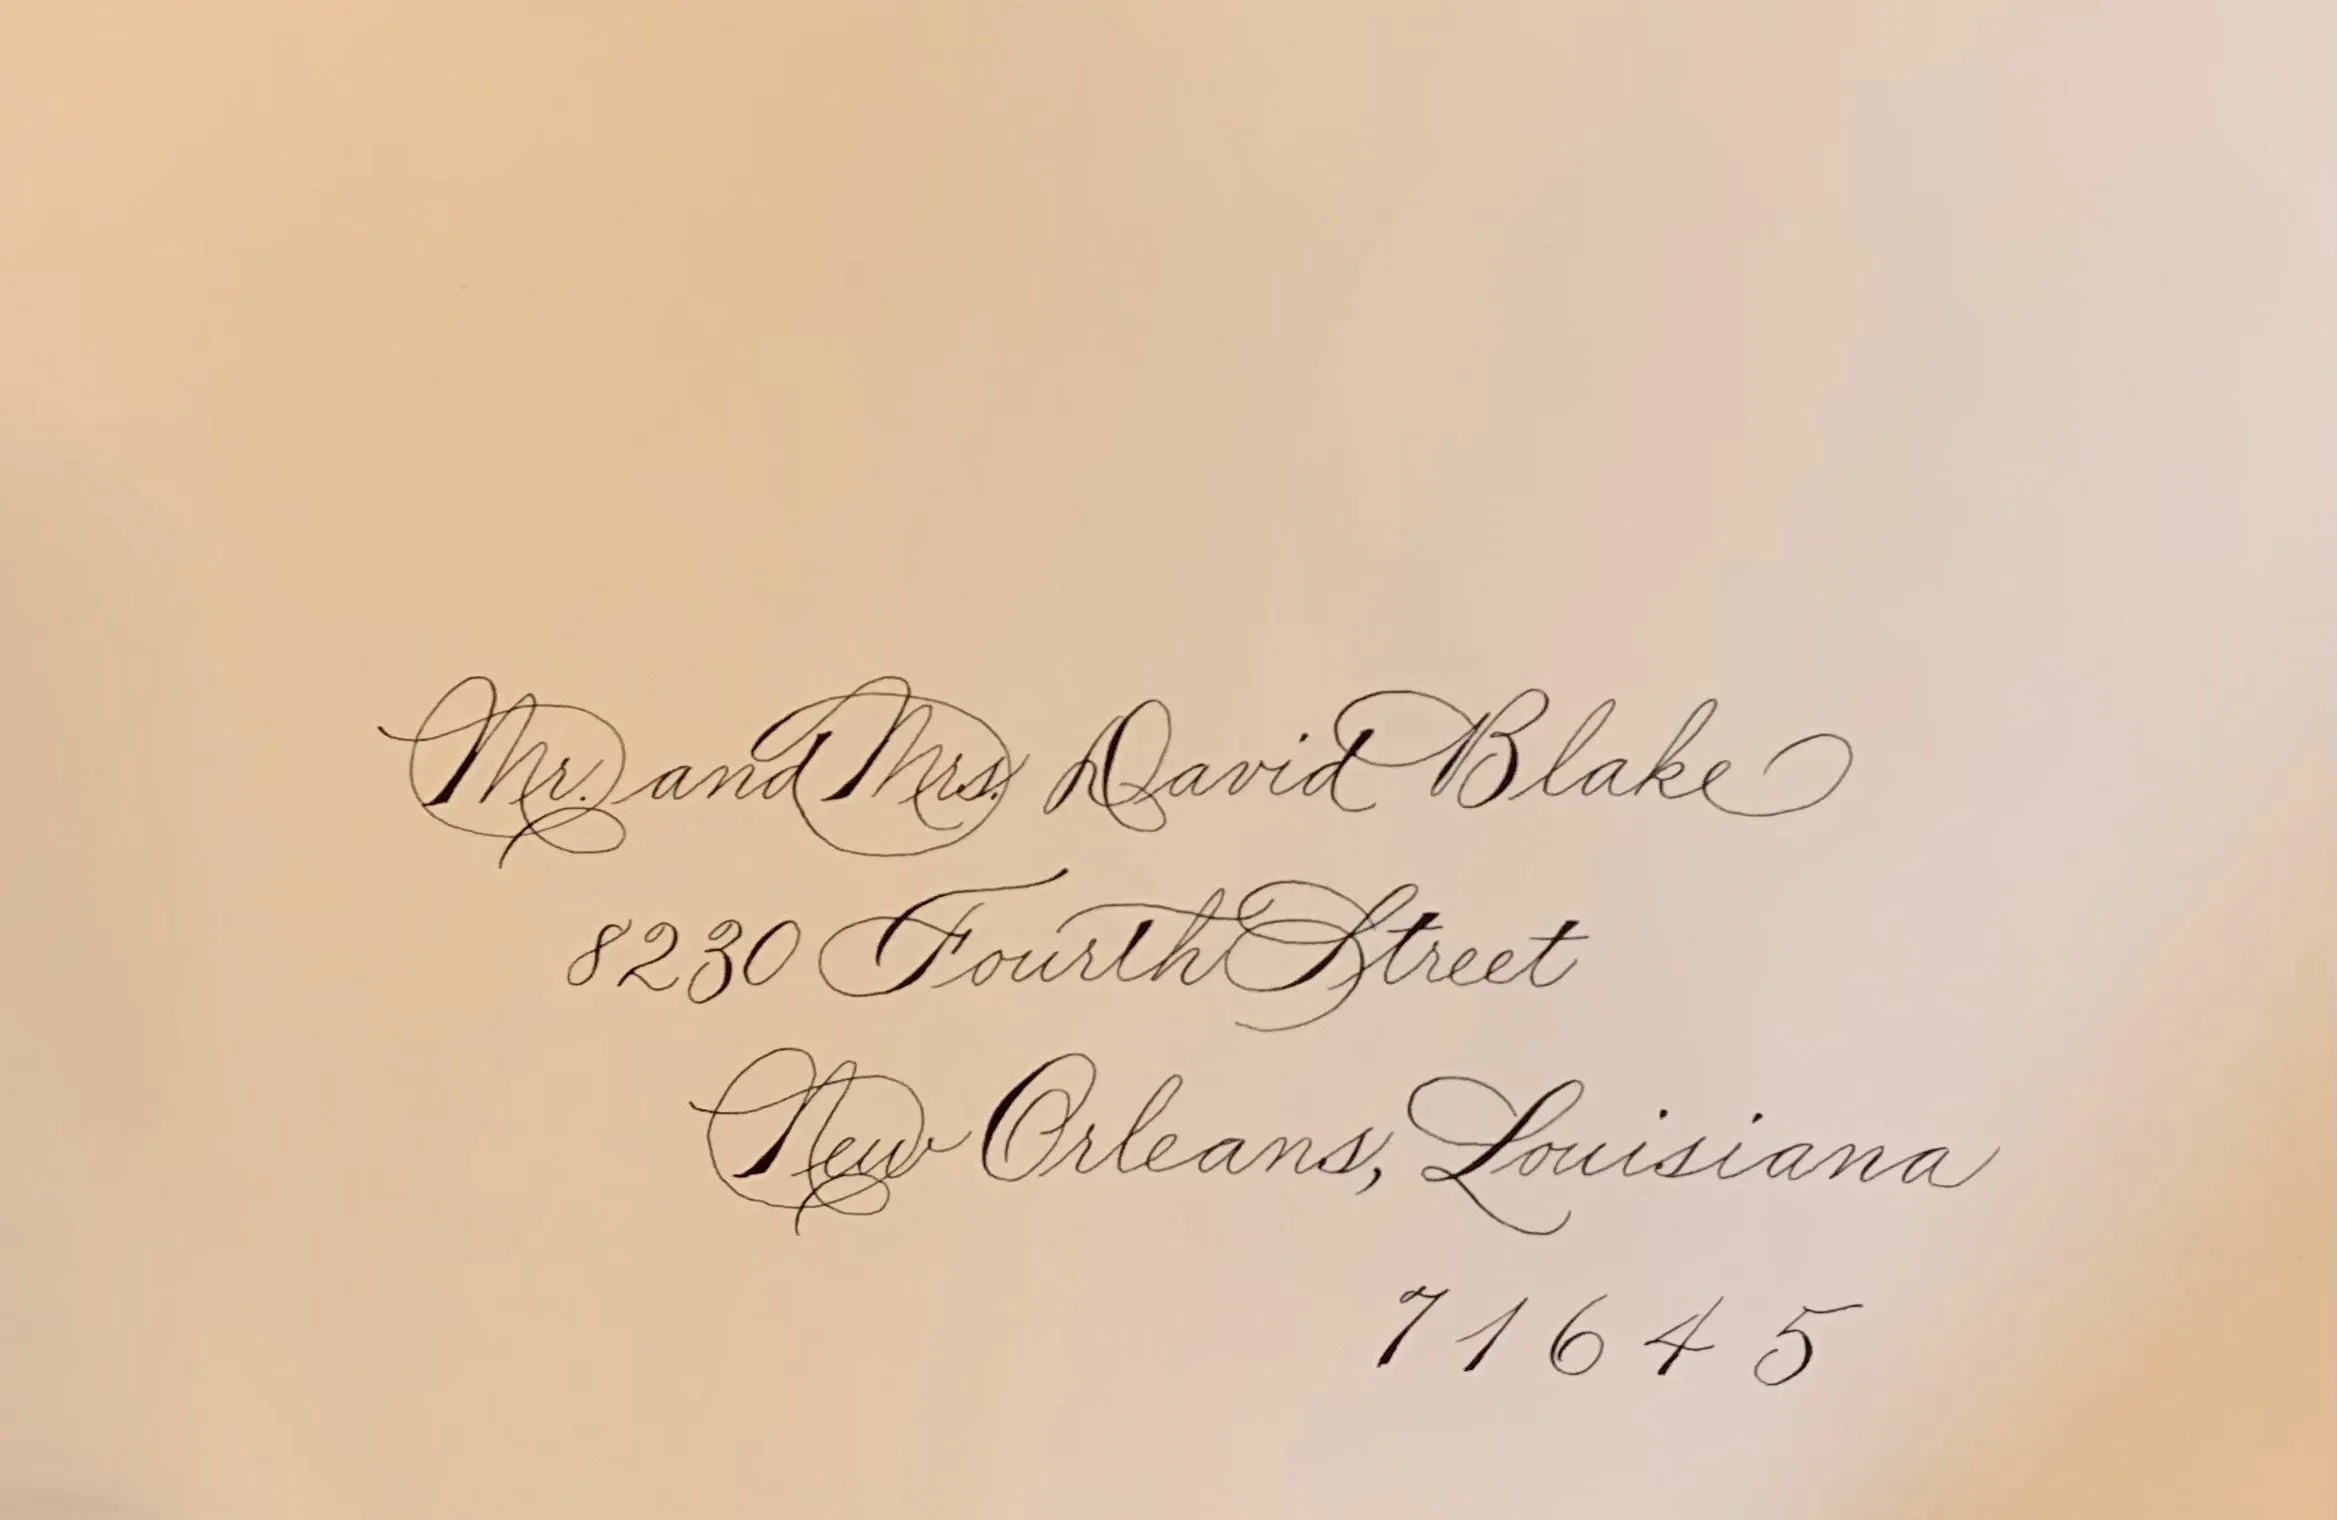 Mr. and Mrs. David Blake
8230 Fourth Street
New Orleans, Louisiana
71645